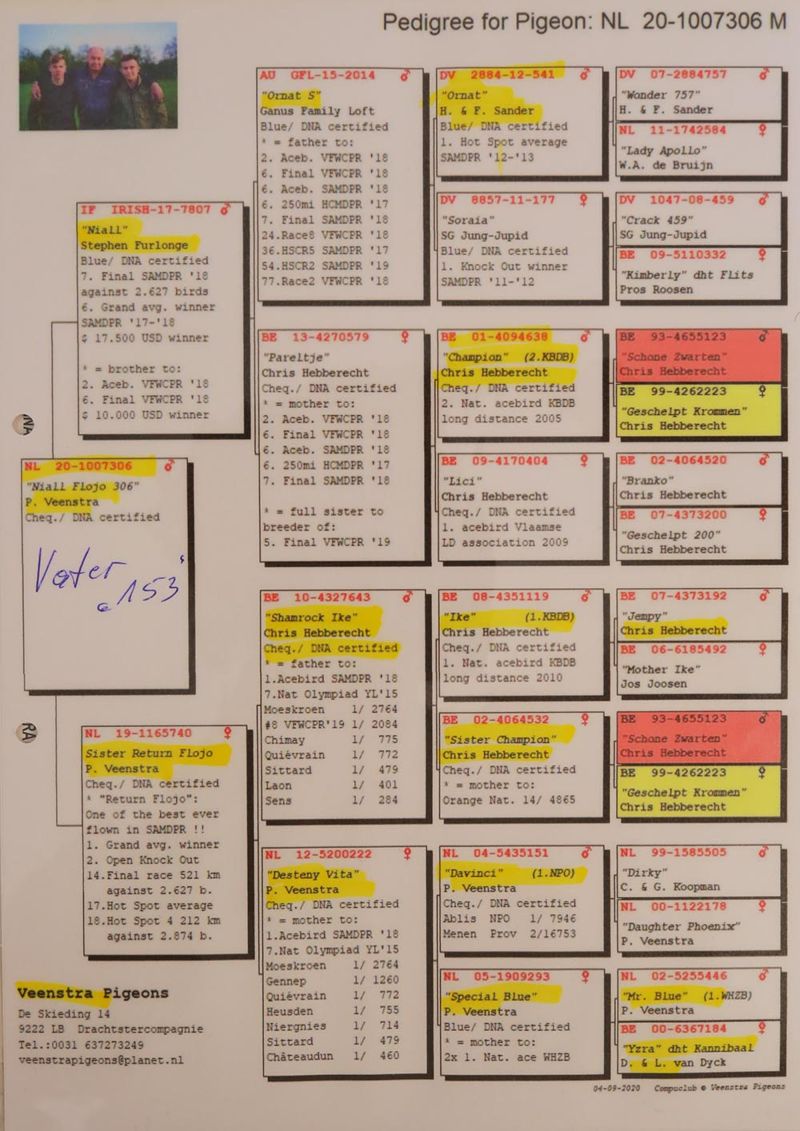 Pedigree for Pigeon: NL 20-1007306 M
IF IRISH-17-7807 ♂
"Niall"
Stephen Furlonge
Blue/ DNA certified
7. Final SAMDPR '18
against 2.627 birds
6. Grand avg. winner
SAMDPR '17-'18
$ 17.500 USD winner
* = brother to:
2. Aceb. VFWCPR '18
6. Final VFWCPR '18
$ 10.000 USD winner
NL 20-1007306 ♂
"Niall Flojo 306"
P. Veenstra
Cheq./ DNA certified
Vater
153
NL 19-1165740 ♀
Sister Return Flojo
P. Veenstra
Cheq./ DNA certified
* "Return Flojo":
One of the best ever
flown in SAMDPR !!
1. Grand avg. winner
2. Open Knock Out
14.Final race 521 km
against 2.627 b.
17.Hot Spot average
18.Hot Spot 4 212 km
against 2.874 b.
Veenstra Pigeons
De Skieding 14
9222 LB Drachtstercompagnie
Tel.:0031 637273249
veenstrapigeons@planet.nl
AU GFL-15-2014 ♂
"Ornat S"
Ganus Family Loft
Blue/ DNA certified
* = father to:
2. Aceb. VFWCPR '18
6. Final VFWCPR '18
6. Aceb. SAMDPR '18
6. 250mi HCMDPR '17
7. Final SAMDPR '18
24.Race8 VFWCPR '18
36.HSCR5 SAMDPR '17
54.HSCR2 SAMDPR '19
77.Race2 VFWCPR '18
BE 13-4270579 ♀
"Pareltje"
Chris Hebberecht
Cheq./ DNA certified
* = mother to:
2. Aceb. VFWCPR '18
6. Final VFWCPR '18
6. Aceb. SAMDPR '18
6. 250mi HCMDPR '17
7. Final SAMDPR '18
* = full sister to
breeder of:
5. Final VFWCPR '19
BE 10-4327643 ♂
"Shamrock Ike"
Chris Hebberecht
Cheq./ DNA certified
* = father to:
1.Acebird SAMDPR '18
7.Nat Olympiad YL'15
Moeskroen 1/ 2764
#8 VFWCPR'19 1/ 2084
Chimay 1/ 775
Quiévrain 1/ 772
Sittard 1/ 479
Laon 1/ 401
Sens 1/ 284
NL 12-5200222 ♀
"Desteny Vita"
P. Veenstra
Cheq./ DNA certified
* = mother to:
1.Acebird SAMDPR '18
7.Nat Olympiad YL'15
Moeskroen 1/ 2764
Gennep 1/ 1260
Quiévrain 1/ 772
Heusden 1/ 755
Niergnies 1/ 714
Sittard 1/ 479
Châteaudun 1/ 460
DV 2884-12-541 ♂
"Ornat"
H. & F. Sander
Blue/ DNA certified
1. Hot Spot average
SAMDPR '12-'13
DV 8857-11-177 ♀
"Soraia"
SG Jung-Jupid
Blue/ DNA certified
1. Knock Out winner
SAMDPR '11-'12
BE 01-4094638 ♂
"Champion" (2.KBDB)
Chris Hebberecht
Cheq./ DNA certified
2. Nat. acebird KBDB
long distance 2005
BE 09-4170404 ♀
"Lici"
Chris Hebberecht
Cheq./ DNA certified
1. acebird Vlaamse
LD association 2009
BE 08-4351119 ♂
"Ike" (1.KBDB)
Chris Hebberecht
Cheq./ DNA certified
1. Nat. acebird KBDB
long distance 2010
BE 02-4064532 ♀
"Sister Champion"
Chris Hebberecht
Cheq./ DNA certified
* = mother to:
Orange Nat. 14/ 4865
NL 04-5435151 ♂
"Davinci" (1.NPO)
P. Veenstra
Cheq./ DNA certified
Ablis NPO 1/ 7946
Menen Prov 2/16753
NL 05-1909293 ♀
"Special Blue"
P. Veenstra
Blue/ DNA certified
* = mother to:
2x 1. Nat. ace WHZB
DV 07-2884757 ♂
"Wonder 757"
H. & F. Sander
NL 11-1742584 ♀
"Lady Apollo"
W.A. de Bruijn
DV 1047-08-459 ♂
"Crack 459"
SG Jung-Jupid
BE 09-5110332 ♀
"Kimberly" dht Flits
Pros Roosen
BE 93-4655123 ♂
"Schone Zwarten"
Chris Hebberecht
BE 99-4262223 ♀
"Geschelpt Krommen"
Chris Hebberecht
BE 02-4064520 ♂
"Branko"
Chris Hebberecht
BE 07-4373200 ♀
"Geschelpt 200"
Chris Hebberecht
BE 07-4373192 ♂
"Jempy"
Chris Hebberecht
BE 06-6185492 ♀
"Mother Ike"
Jos Joosen
BE 93-4655123 ♂
"Schone Zwarten"
Chris Hebberecht
BE 99-4262223 ♀
"Geschelpt Krommen"
Chris Hebberecht
NL 99-1585505 ♂
"Dirky"
C. & G. Koopman
NL 00-1122178 ♀
"Daughter Phoenix"
P. Veenstra
NL 02-5255446 ♂
"Mr. Blue" (1.WHZB)
P. Veenstra
BE 00-6367184 ♀
"Yzra" dht Kannibaal
D. & L. van Dyck
04-09-2020 Compuclub © Veenstra Pigeons